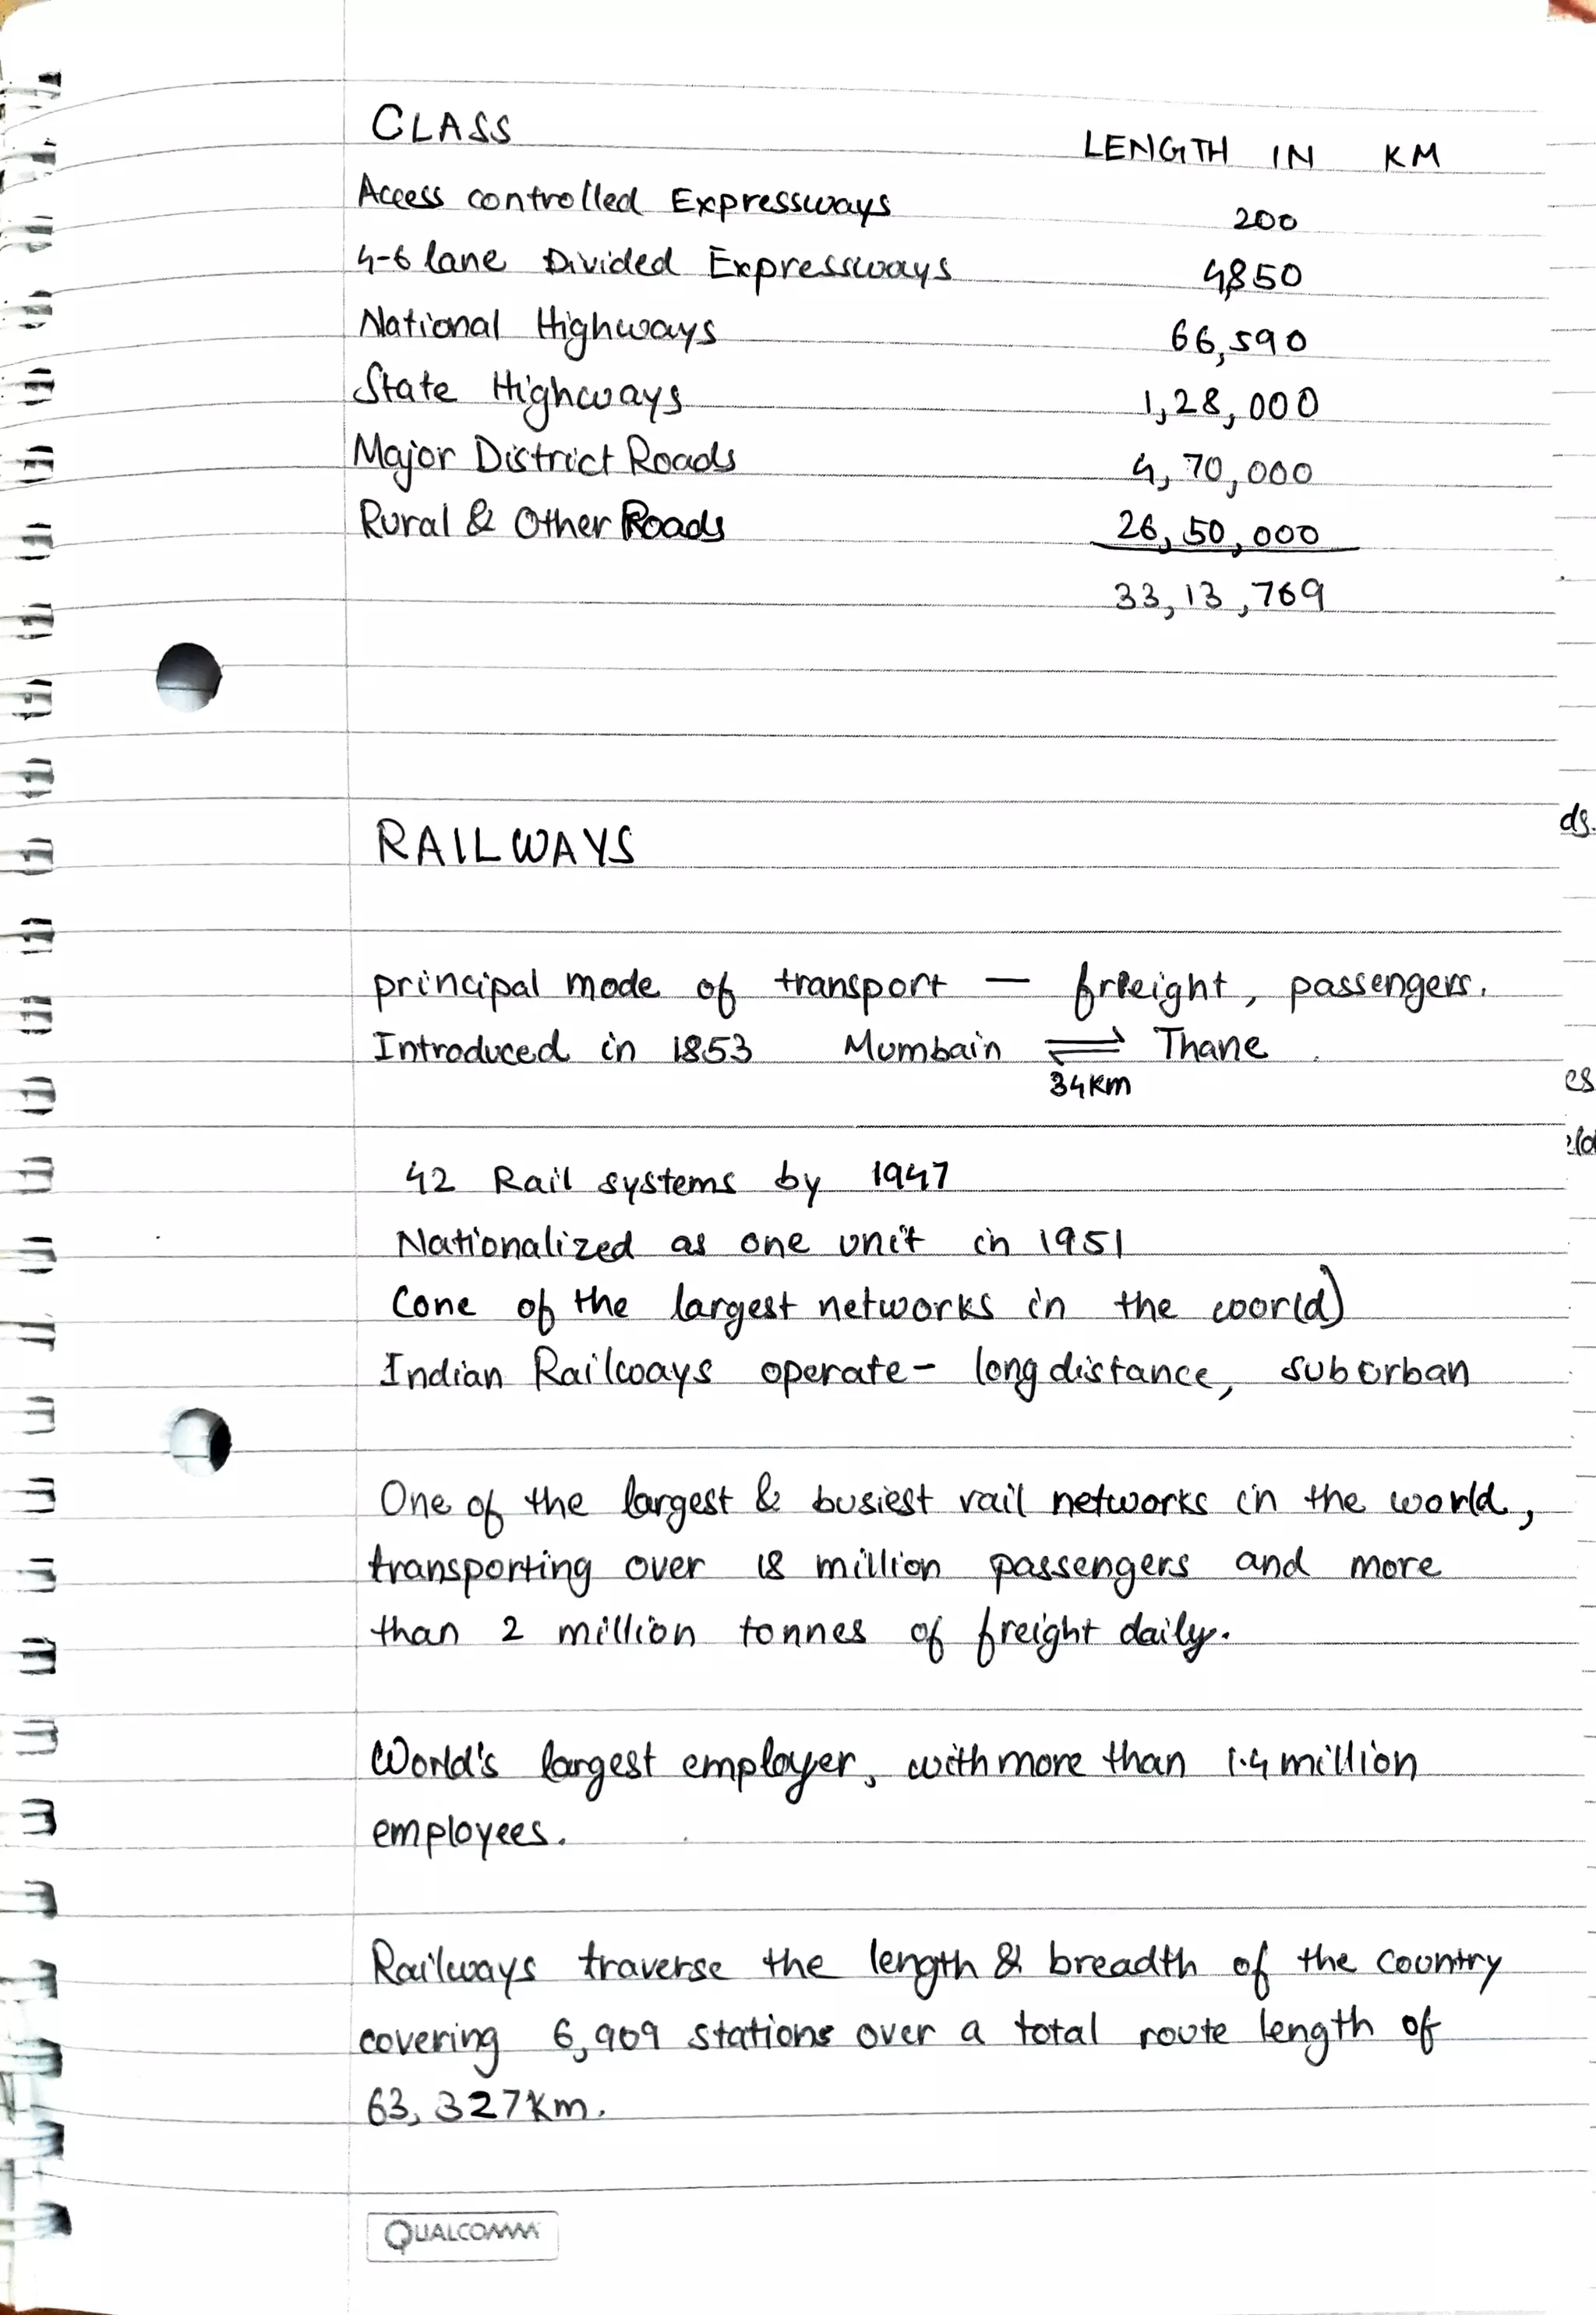 CLASS LENGTH IN KM
Access controlled Expressways 200
4-6 lane Divided Expressways 4,850
National Highways 66,590
State Highways 1,28,000
Major District Roads 4,70,000
Rural & Other Roads 26,50,000
33,13,769
RAILWAYS
principal mode of transport — freight, passengers.
Introduced in 1853 Mumbain ⇌ Thane
34km
42 Rail systems by 1947
Nationalized as one unit in 1951
(one of the largest networks in the world)
Indian Railways operate - long distance, suburban
One of the largest & busiest rail networks in the world,
transporting over 18 million passengers and more
than 2 million tonnes of freight daily.
World's largest employer, with more than 1.4 million
employees.
Railways traverse the length & breadth of the country
covering 6,909 stations over a total route length of
63,327km.
QUALCOMM